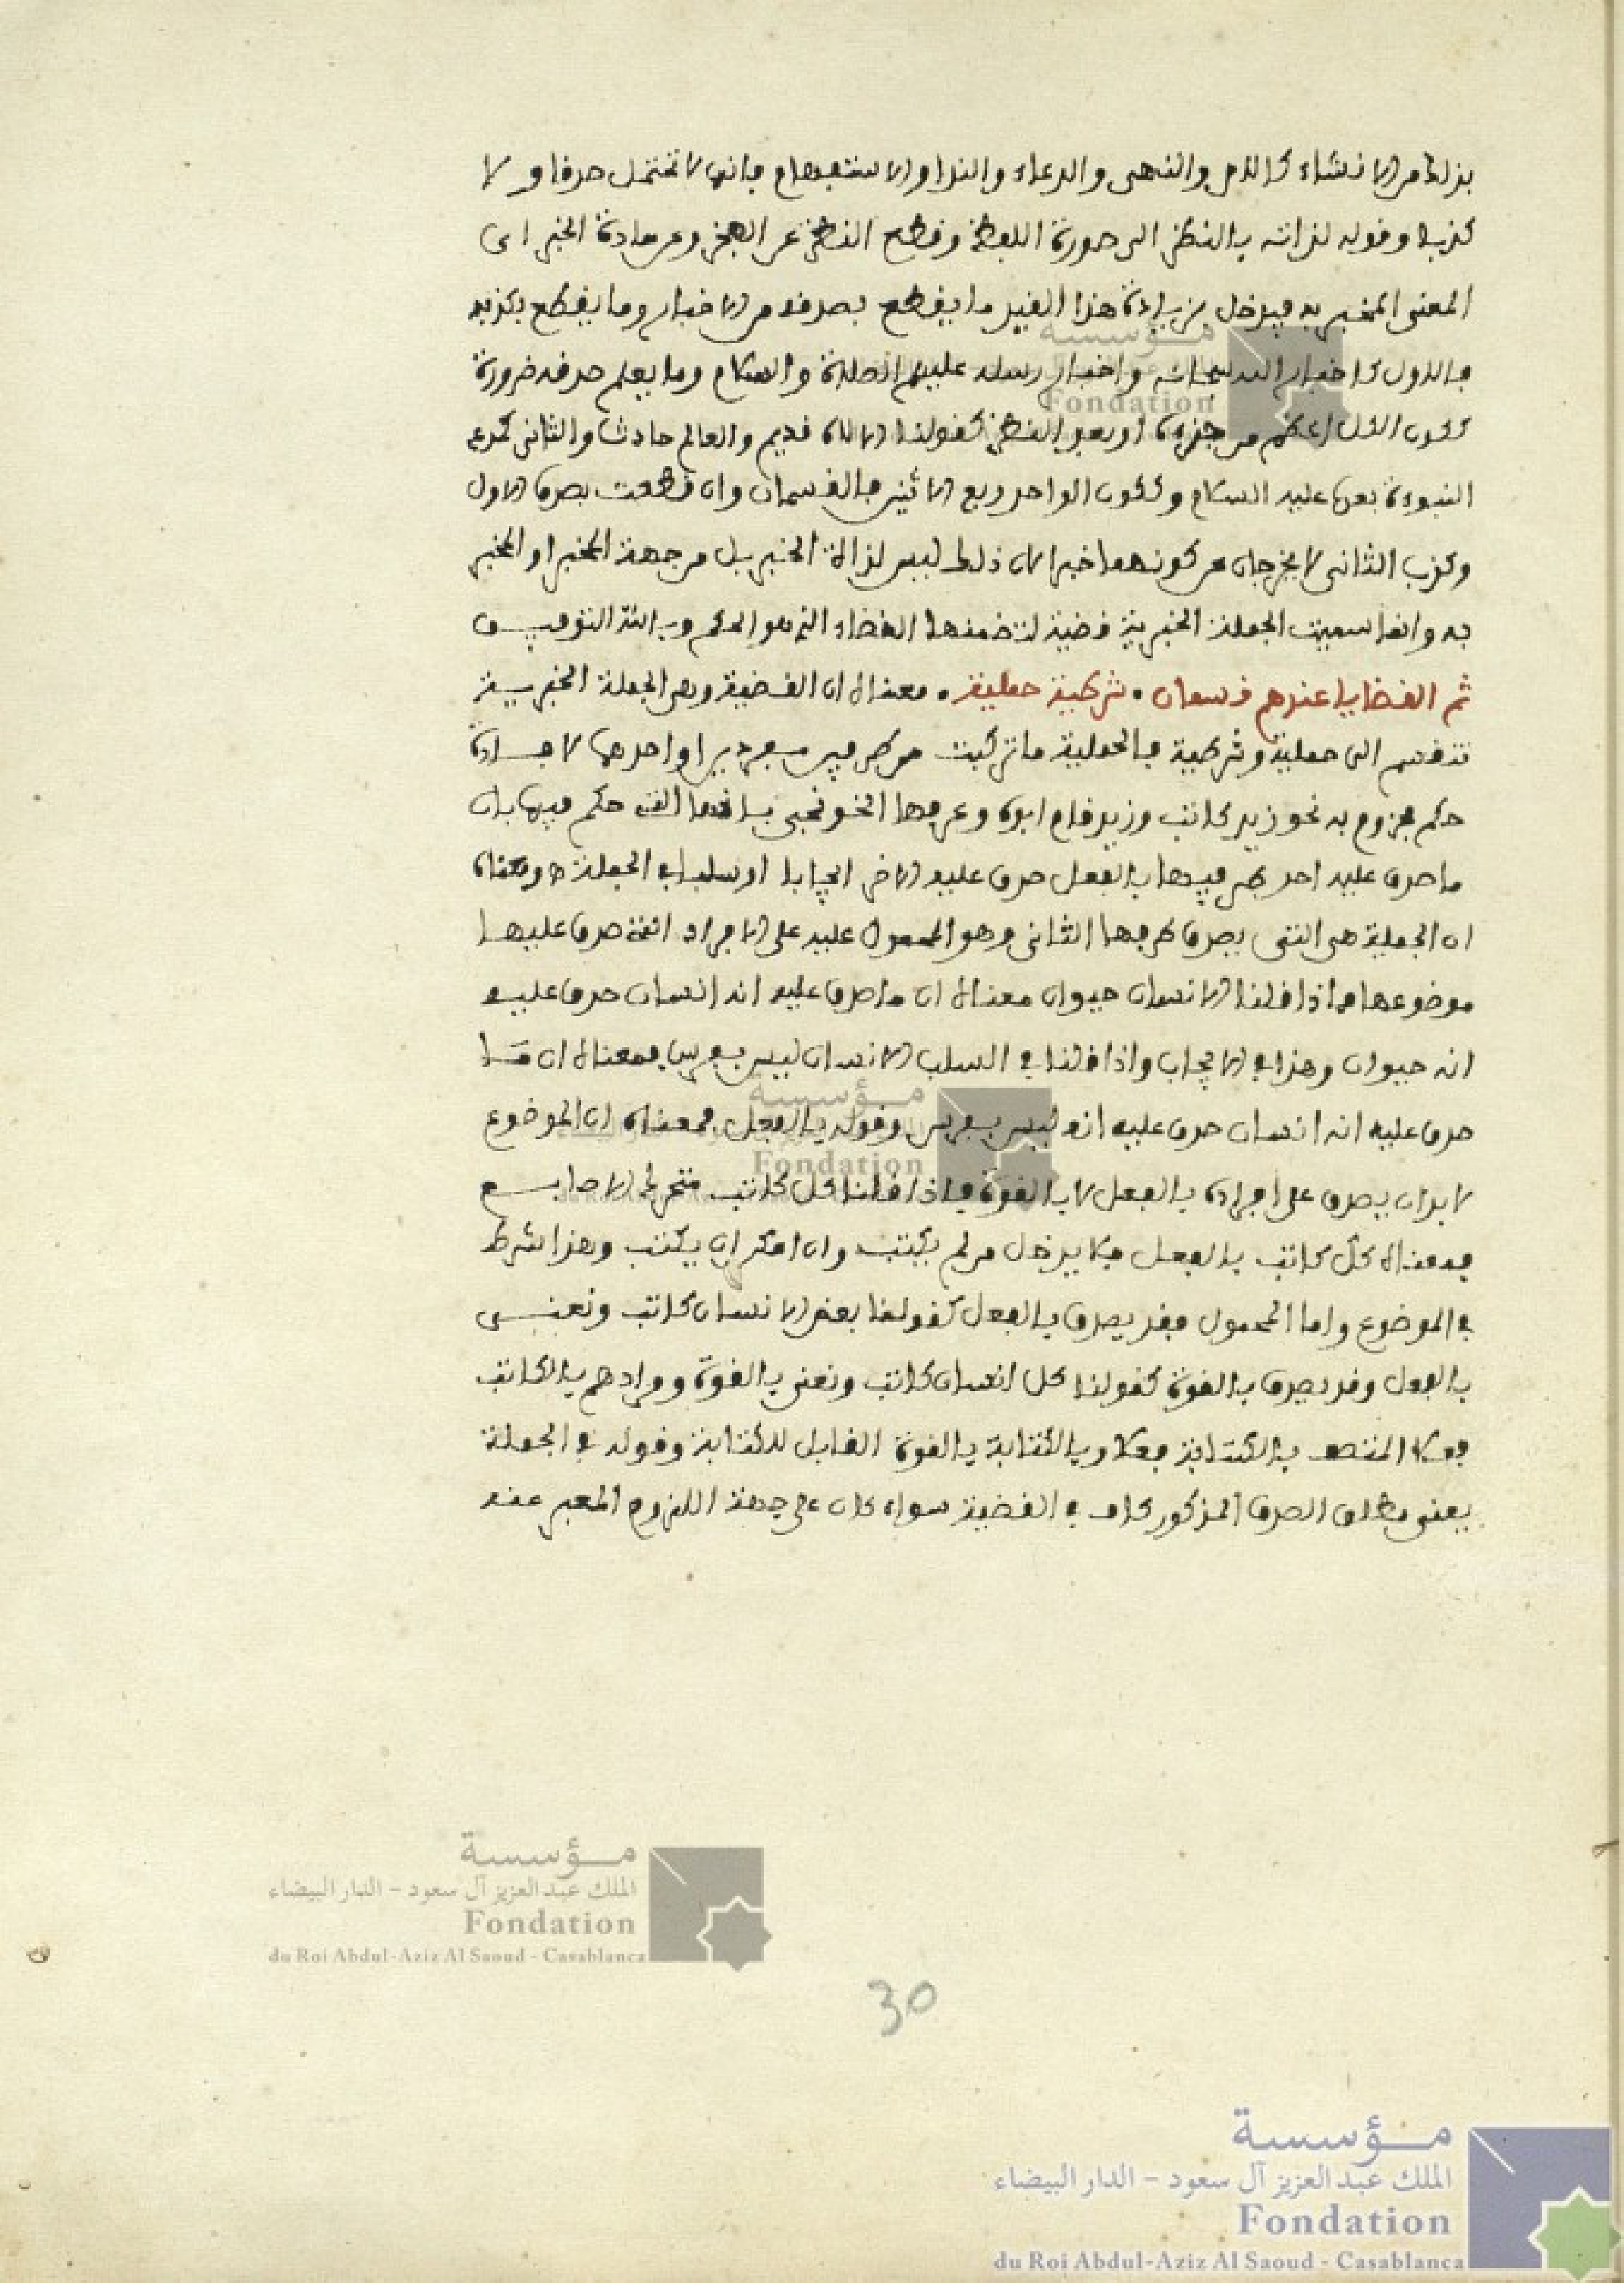 بذلك من الانشاء كالامر والنهي والدعاء والندا والاستفهام فانها لا تحتمل صدقا ولا
كذبا وقوله لذاته بالنظر الى صورة اللفظ وقطع النظر عن المخبر وعن مادة الخبر اي
المعنى المخبر به فيدخل بزيادة هذا القيد ما يقطع بصدقه من الاخبار وما يقطع بكذبه
فالاول كاخبار الله سبحانه واخبار رسله عليهم الصلاة والسلام وما يعلم صدقه ضرورة
ككون الكل اعظم من جزءه او بعد النظر كقولنا الاله قديم والعالم حادث والثاني كمدع
النبوءة بعده عليه السلام وككون الواحد ربع الاثنين فالقسمان وان قطعت بصدق الاول
وكذب الثاني لا يخرجان عن كونهما خبرا لان ذلك ليس لذات الخبر بل من جهة المخبر او المخبر
به وانما سميت الجملة الخبرية قضية لتضمنها القضاء الذي هو الحكم وبالله التوفيق
ثم القضايا عندهم قسمان • شرطية حملية • معناه ان القضية وهي الجملة الخبرية
تنقسم الى حملية وشرطية فالحملية ما تركبت من طرفين مفردين او احدهما لافادة
حكم مجزوم به نحو زيد كاتب وزيد قام ابوه وعرفها الخونجي بانها التي حكم فيها بان
ما صدق عليه احد طرفيها بالفعل صدق عليه الاخر ايجابا او سلبا في الجملة ومعناه
ان الحملية هي التي يصدق طرفها الثاني وهو المحمول عليه على الافراد التي صدق عليها
موضوعها فاذا قلنا الانسان حيوان معناه ان ما صدق عليه انه انسان صدق عليه
انه حيوان وهذا في الايجاب واذا قلنا في السلب الانسان ليس بفرس فمعناه ان ما
صدق عليه انه انسان صدق عليه انه ليس بفرس وقوله بالفعل فمعناه ان الموضوع
لا بد ان يصدق على افراده بالفعل لا بالقوة فاذا قلنا كل كاتب متحرك الاصابع
فمعناه كل كاتب بالفعل فلا يدخل من لم يكتب وان امكن ان يكتب وهذا شرط
في الموضوع واما المحمول فقد يصدق بالفعل كقولنا بعض الانسان كاتب ونعني
بالفعل وقد يصدق بالقوة كقولنا كل انسان كاتب ونعني بالقوة ومرادهم بالكاتب
فعلا المتصف بالكتابة فعلا وبالكتابة بالقوة القابل للكتابة وقوله في الجملة
يعني مطلق الصدق المذكور كاف في القضية سواء كان على جهة اللزوم المعبر عنه
30
مؤسسة
الملك عبد العزيز آل سعود - الدار البيضاء
Fondation
du Roi Abdul-Aziz Al Saoud - Casablanca
مؤسسة
الملك عبد العزيز آل سعود - الدار البيضاء
Fondation
du Roi Abdul-Aziz Al Saoud - Casablanca